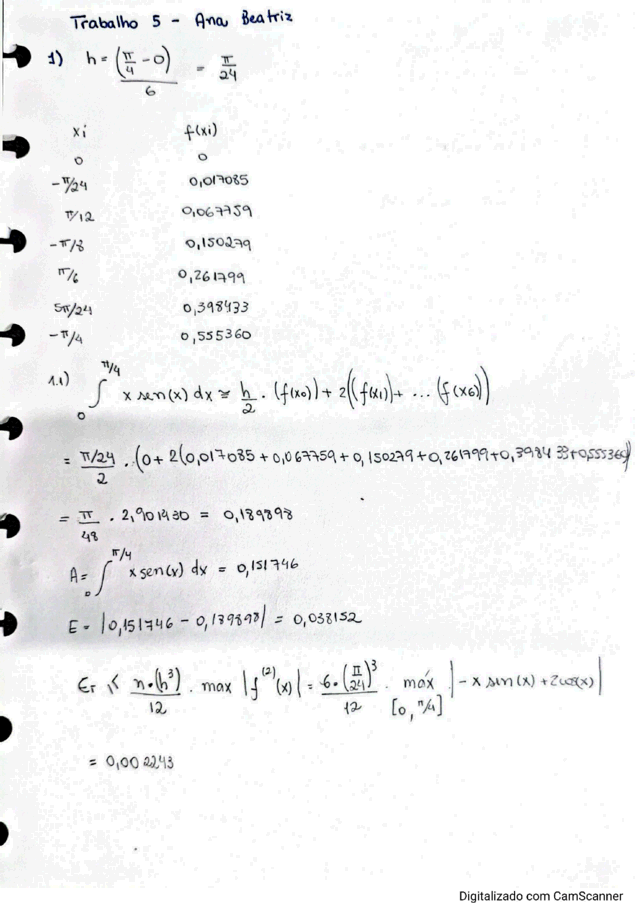 Trabalho 5 - Ana Beatriz
1) h = (π/4 - 0)/6 = π/24
xi f(xi)
0 0
-π/24 0,017085
π/12 0,067759
-π/8 0,150279
π/6 0,261799
5π/24 0,398433
-π/4 0,555360
1.1) ∫₀^π/4 x sen(x) dx ≅ h/2 · (f(x0)) + 2((f(x1)+ ... (f(x6))
= π/24/2 · (0 + 2(0,017085 + 0,067759 + 0,150279 + 0,261799 + 0,398433 + 0,555360)
= π/48 · 2,901430 = 0,189898
A = ∫₀^π/4 x sen(x) dx = 0,151746
E = |0,151746 - 0,189898| = 0,038152
Er ≤ n·(h³)/12 · max |f⁽²⁾(x)| = 6·(π/24)³/12 · máx [0, π/4] |-x sen(x) + 2cos(x)|
= 0,002243
Digitalizado com CamScanner